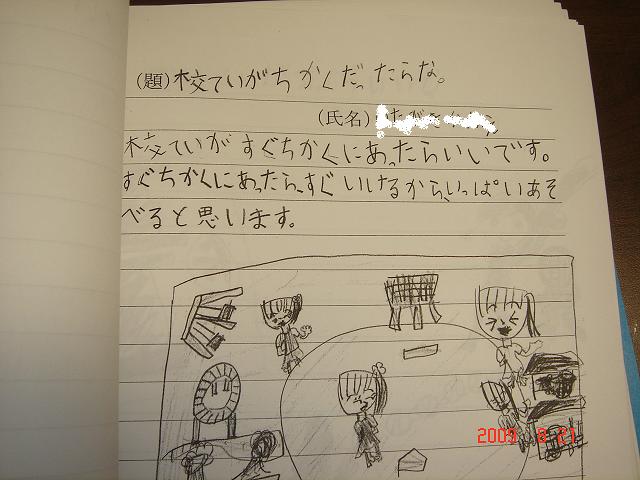 (題) 校ていがちかくだったらな。
(氏名)
校ていがすぐちかくにあったらいいです。
すぐちかくにあったら、すぐいけるから、いっぱいあそ
べると思います。
2009 8 21